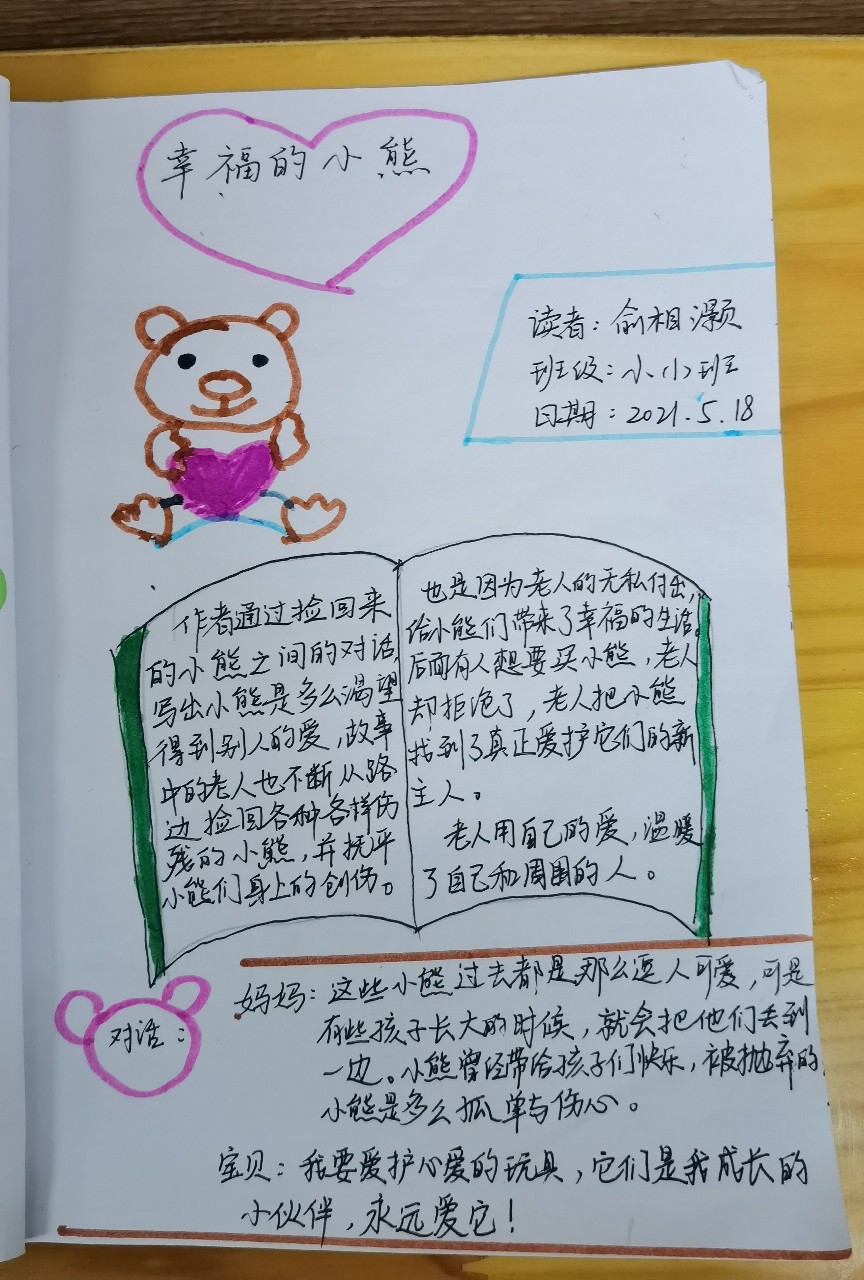 幸福的小熊
读者：俞相灏
班级：小小班
日期：2021.5.18
作者通过捡回来
的小熊之间的对话，
写出小熊是多么渴望
得到别人的爱，故事
中的老人也不断从路
边捡回各种各样伤
残的小熊，并抚平
小熊们身上的创伤。
也是因为老人的无私付出，
给小熊们带来了幸福的生活。
后面有人想要买小熊，老人
却拒绝了，老人把小熊
找到了真正爱护它们的新
主人。
老人用自己的爱，温暖
了自己和周围的人。
对话：
妈妈：这些小熊过去都是那么逗人可爱，可是
有些孩子长大的时候，就会把他们丢到
一边。小熊曾经带给孩子们快乐，被抛弃的
小熊是多么孤单与伤心。
宝贝：我要爱护心爱的玩具，它们是我成长的
小伙伴，永远爱它！